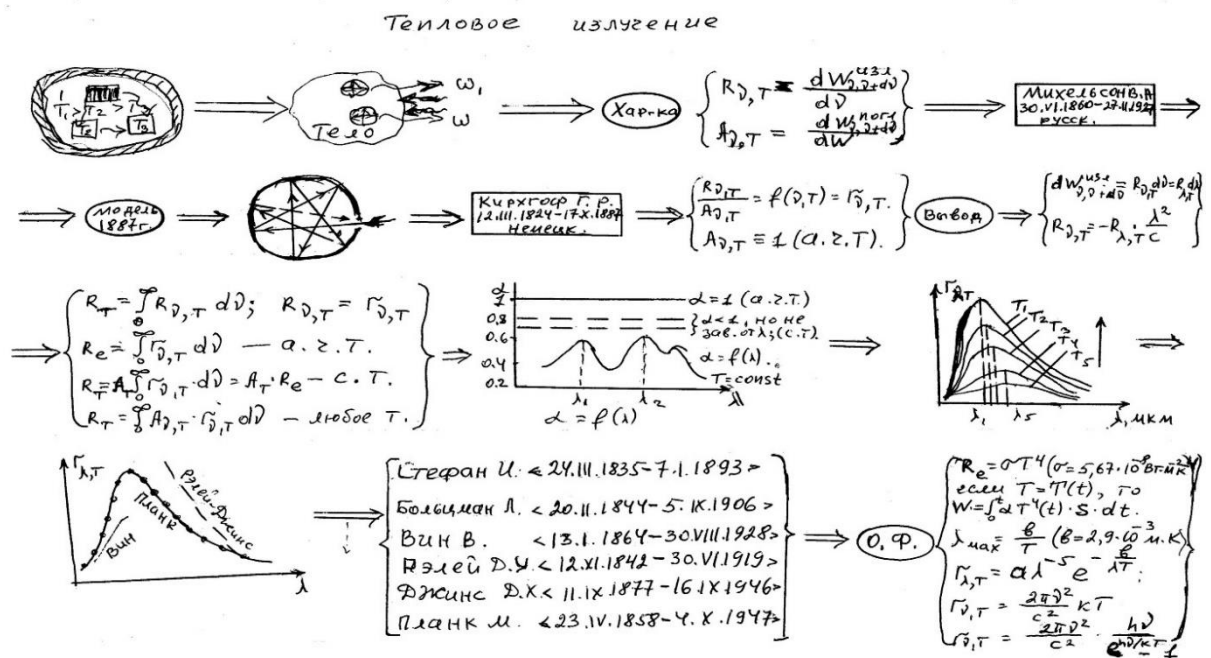 Тепловое излучение
T₁ > T₂ > T₃
T₂ → T₃
Тело
ω₁
ω
Хар-ка
R_ν,T = dW^изл_ν,ν+dν / dν
A_ν,T = dW^погл_ν,ν+dν / dW
Михельсон В.А
30.VI.1860-27.II.1927
русск.
модель
1887г.
Кирхгоф Г. Р.
12.III.1824-17.X.1887
Немецк.
R_ν,T / A_ν,T = f(ν,T) = r_ν,T.
A_ν,T ≡ 1 (а.ч.Т).
Вывод
dW^изл_ν,ν+dν = R_ν,T dν = R_λ,T dλ
R_ν,T = -R_λ,T · λ²/c
R_T = ∫₀^∞ R_ν,T dν; R_ν,T = r_ν,T
R_e = ∫₀^∞ r_ν,T dν — а.ч.т.
R_T = A_T ∫₀^∞ r_ν,T · dν = A_T · R_e — с.т.
R_T = ∫₀^∞ A_ν,T · r_ν,T dν — любое т.
α
1
0,8
0.6
0.4
0.2
α=1 (а.ч.т.)
α<1, но не
зав. от λ; (с.т.)
α=f(λ).
T=const
λ₁ λ₂ λ
α = f(λ)
r_λT
T₁ T₂ T₃ T₄ T₅
λ₁ λ₅ λ, мкм
r_λ,T
Рэлей-Джинс
Планк
Вин
λ
Стефан И. <24.III.1835-7.I.1893>
Больцман Л. <20.II.1844-5.IX.1906>
Вин В. <13.I.1864-30.VIII.1928>
Рэлей Д.У. <12.XI.1842-30.VI.1919>
Джинс Д.Х. <11.IX.1877-16.IX.1946>
Планк М. <23.IV.1858-4.X.1947>
О.Ф.
R_e = σT⁴ (σ=5,67·10⁻⁸ Вт·м⁻²К⁻⁴)
если T=T(t), то
W=∫₀^t αT⁴(t)·S·dt.
λ_max = в/T (в=2,9·10⁻³ м.К)
r_λ,T = aλ⁻⁵ e^(-в/λT);
r_ν,T = 2πν²/c² kT
r_ν,T = 2πν²/c² · hν/(e^(hν/kT) - 1)